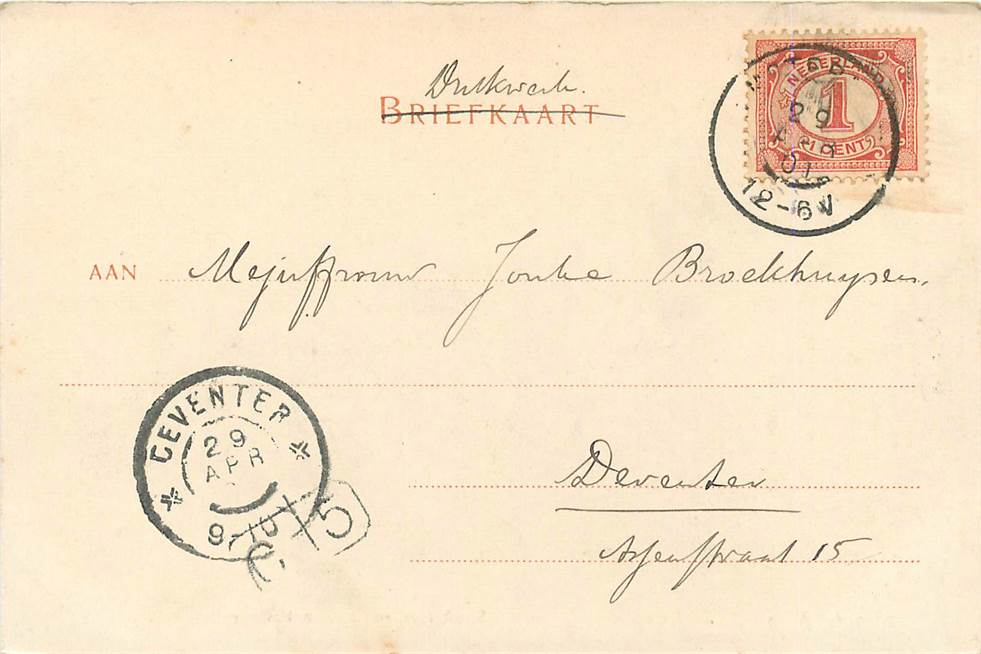 Drukwerk.
BRIEFKAART
NEDERLAND
1
CENT
29
APR
01
12-6V
AAN Mejuffrouw Jonke Broekhuysen.
DEVENTER
29
APR
9-10
5
Deventer
Assenstraat 15